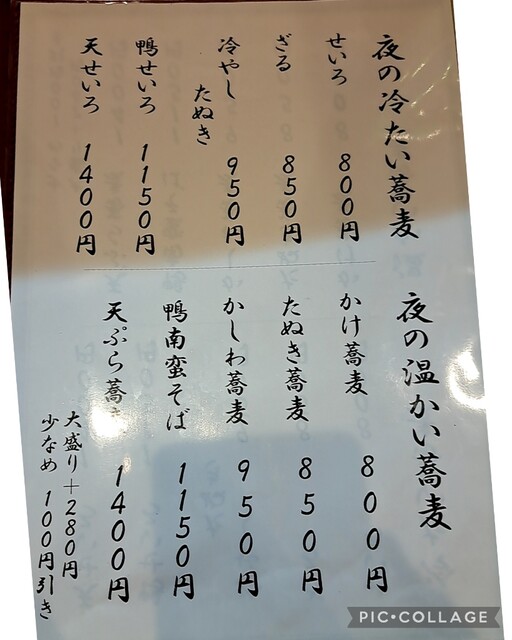 夜の冷たい蕎麦
せいろ 800円
ざる 850円
冷やし
たぬき 950円
鴨せいろ 1150円
天せいろ 1400円
夜の温かい蕎麦
かけ蕎麦 800円
たぬき蕎麦 850円
かしわ蕎麦 950円
鴨南蛮そば 1150円
天ぷら蕎 1400円
大盛り+280円
少なめ 100円引き
PIC•COLLAGE